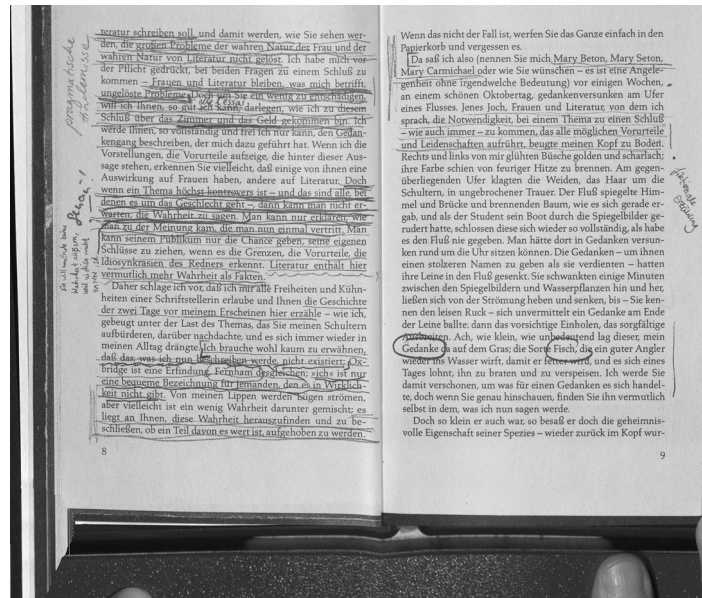 teratur schreiben soll, und damit werden, wie Sie sehen wer-
den, die großen Probleme der wahren Natur der Frau und der
wahren Natur von Literatur nicht gelöst. Ich habe mich vor
der Pflicht gedrückt, bei beiden Fragen zu einem Schluß zu
kommen – Frauen und Literatur bleiben, was mich betrifft,
ungelöste Probleme. Doch um Sie ein wenig zu entschädigen,
will ich Ihnen, so gut ich kann, darlegen, wie ich zu diesem
Schluß über das Zimmer und das Geld gekommen bin. Ich
werde Ihnen, so vollständig und frei ich nur kann, den Gedan-
kengang beschreiben, der mich dazu geführt hat. Wenn ich die
Vorstellungen, die Vorurteile aufzeige, die hinter dieser Aus-
sage stehen, erkennen Sie vielleicht, daß einige von ihnen eine
Auswirkung auf Frauen haben, andere auf Literatur. Doch
wenn ein Thema höchst kontrovers ist – und das sind alle, bei
denen es um das Geschlecht geht –, dann kann man nicht er-
warten, die Wahrheit zu sagen. Man kann nur erklären, wie
man zu der Meinung kam, die man nun einmal vertritt. Man
kann seinem Publikum nur die Chance geben, seine eigenen
Schlüsse zu ziehen, wenn es die Grenzen, die Vorurteile, die
Idiosynkrasien des Redners erkennt. Literatur enthält hier
vermutlich mehr Wahrheit als Fakten.
Daher schlage ich vor, daß ich mir alle Freiheiten und Kühn-
heiten einer Schriftstellerin erlaube und Ihnen die Geschichte
der zwei Tage vor meinem Erscheinen hier erzähle – wie ich,
gebeugt unter der Last des Themas, das Sie meinen Schultern
aufbürderen, darüber nachdachte, und es sich immer wieder in
meinen Alltag drängte. Ich brauche wohl kaum zu erwähnen,
daß das, was ich nun beschreiben werde, nicht existiert; Ox-
bridge ist eine Erfindung, Fernham desgleichen; »ich« ist nur
eine bequeme Bezeichnung für jemanden, den es in Wirklich-
keit nicht gibt. Von meinen Lippen werden Lügen strömen,
aber vielleicht ist ein wenig Wahrheit darunter gemischt; es
liegt an Ihnen, diese Wahrheit herauszufinden und zu be-
schließen, ob ein Teil davon es wert ist, aufgehoben zu werden.
8
Genau!
Wenn das nicht der Fall ist, werfen Sie das Ganze einfach in den
Papierkorb und vergessen es.
Da saß ich also (nennen Sie mich Mary Beton, Mary Seton,
Mary Carmichael oder wie Sie wünschen – es ist eine Angele-
genheit ohne irgendwelche Bedeutung) vor einigen Wochen,
an einem schönen Oktobertag, gedankenversunken am Ufer
eines Flusses. Jenes Joch, Frauen und Literatur, von dem ich
sprach, die Notwendigkeit, bei einem Thema zu einem Schluß
– wie auch immer – zu kommen, das alle möglichen Vorurteile
und Leidenschaften aufrührt, beugte meinen Kopf zu Boden.
Rechts und links von mir glühten Büsche golden und scharlach;
ihre Farbe schien von feuriger Hitze zu brennen. Am gegen-
überliegenden Ufer klagten die Weiden, das Haar um die
Schultern, in ungebrochener Trauer. Der Fluß spiegelte Him-
mel und Brücke und brennenden Baum, wie es sich gerade er-
gab, und als der Student sein Boot durch die Spiegelbilder ge-
rudert hatte, schlossen diese sich wieder so vollständig, als habe
es den Fluß nie gegeben. Man hätte dort in Gedanken versun-
ken rund um die Uhr sitzen können. Die Gedanken – um ihnen
einen stolzeren Namen zu geben als sie verdienten – hatten
ihre Leine in den Fluß gesenkt. Sie schwankten einige Minuten
zwischen den Spiegelbildern und Wasserpflanzen hin und her,
ließen sich von der Strömung heben und senken, bis – Sie ken-
nen den leisen Ruck – sich unvermittelt ein Gedanke am Ende
der Leine ballte: dann das vorsichtige Einholen, das sorgfältige
Ausbreiten. Ach, wie klein, wie unbedeutend lag dieser, mein
Gedanke da auf dem Gras; die Sorte Fisch, die ein guter Angler
wieder ins Wasser wirft, damit er fetter wird, und es sich eines
Tages lohnt, ihn zu braten und zu verspeisen. Ich werde Sie
damit verschonen, um was für einen Gedanken es sich handel-
te, doch wenn Sie genau hinschauen, finden Sie ihn vermutlich
selbst in dem, was ich nun sagen werde.
Doch so klein er auch war, so besaß er doch die geheimnis-
volle Eigenschaft seiner Spezies – wieder zurück im Kopf wur-
9